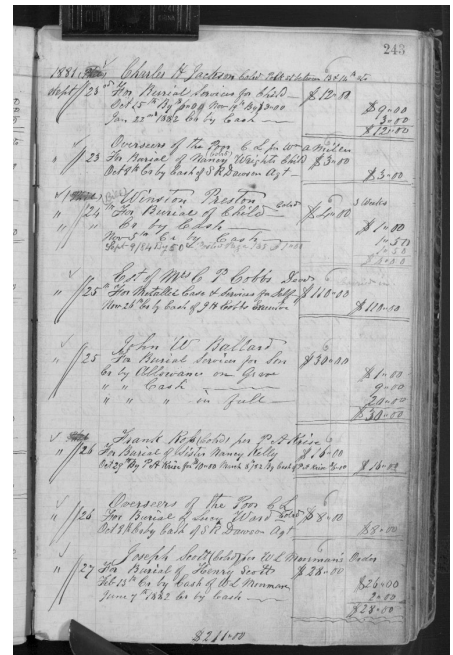 243
1881 Charles H Jackson Cold
Sept 23 For Burial Services for Child $12.00
Oct 15th By $9.00 Nov 9th By $3.00 $9.00
Jan 22nd 1882 By Cash 3.00
$12.00
Overseers of the Poor C L for Wm A Miller
" 23 For Burial of Nancy Wrights Child $3.00
Oct 8th Cr by Cash of S R Dawson Agt $3.00
Winston Preston Cold 3 Weeks
" 24th For Burial of Child $4.00
" " Cr by Cash $1.00
Nov 5th Cr by Cash 1.50
Est of Mrs C P Cobbs Decd
" 25th For Metallic Case & Services for Self $110.00
Nov 26th Cr by Cash of J H Cobbs $110.00
John W Ballard
" 25 For Burial Services for Son $30.00
Cr by Allowance on Grave $1.00
" " Cash 9.00
" " " in full 20.00
$30.00
Frank (Cold) for P A Krise
" 26 For Burial of Sister Nancy Kelly $16.00
Oct 29th By P A Krise $16.00
Overseers of the Poor C L
" 26 For Burial of Lucy Ward Cold $8.00
Oct 8th Cr by Cash of S R Dawson Agt $8.00
Joseph Scott (Cold) for W L Norman's Order
" 27 For Burial of Henry Scott $28.00
Feb 13th Cr by Cash of W L Norman $26.00
June 7th 1882 Cr by Cash 2.00
$28.00
$211.00